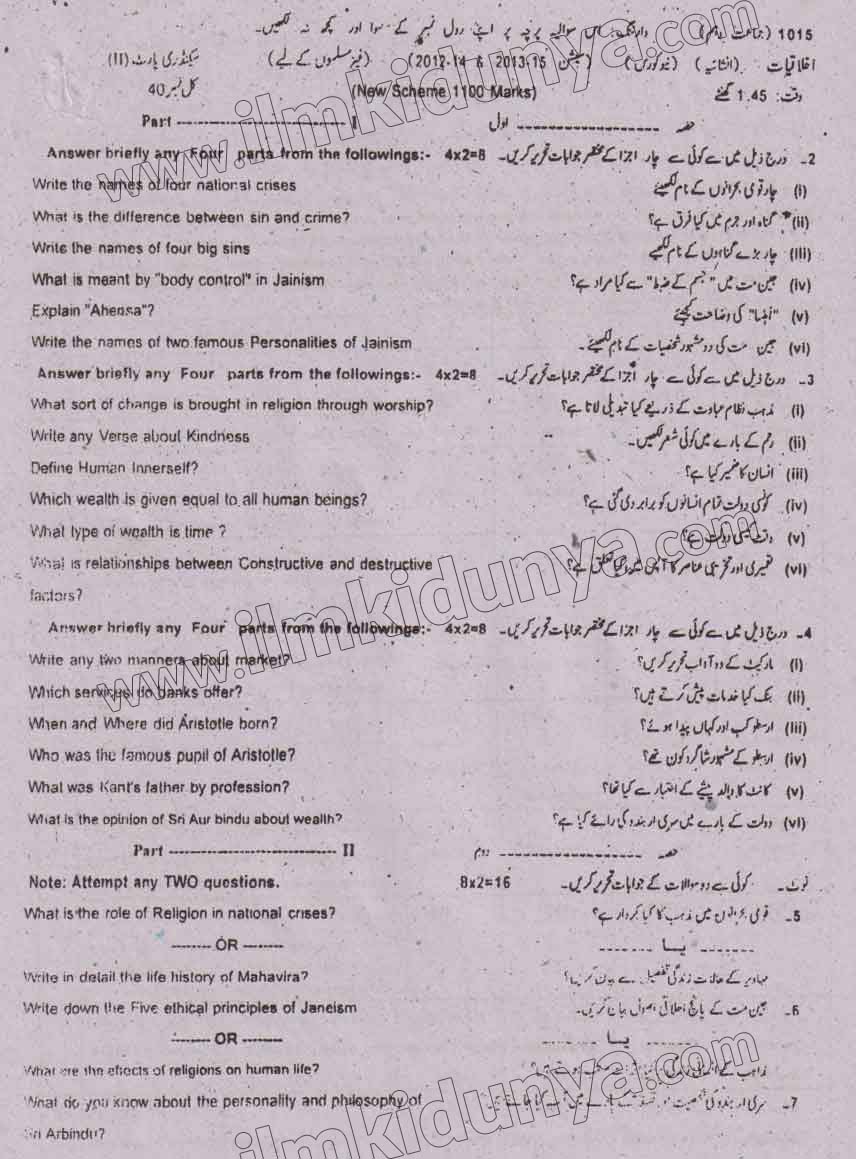 1015 (جماعت دہم) وارننگ: اس سوالیہ پرچہ پر اپنے رول نمبر کے سوا اور کچھ نہ لکھیں۔
اخلاقیات (انشائیہ) (نیو کورس) (سیشن 2013-15 & 2012-14) (غیر مسلموں کے لیے) سیکنڈری پارٹ (II)
وقت: 1.45 گھنٹے (New Scheme 1100 Marks) کل نمبر 40
Part ---------- I حصہ ---------- اول
Answer briefly any Four parts from the followings:- 4x2=8 2۔ درج ذیل میں سے کوئی سے چار اجزا کے مختصر جوابات تحریر کریں۔
Write the names of four national crises (i) چار قومی بحرانوں کے نام لکھیئے
What is the difference between sin and crime? (ii) گناہ اور جرم میں کیا فرق ہے؟
Write the names of four big sins (iii) چار بڑے گناہوں کے نام لکھیے
What is meant by "body control" in Jainism (iv) جین مت میں "جسم کے ضبط" سے کیا مراد ہے؟
Explain "Ahensa"? (v) "اہنسا" کی وضاحت کیجئے
Write the names of two famous Personalities of Jainism (vi) جین مت کی دو مشہور شخصیات کے نام لکھیئے۔
Answer briefly any Four parts from the followings:- 4x2=8 3۔ درج ذیل میں سے کوئی سے چار اجزا کے مختصر جوابات تحریر کریں۔
What sort of change is brought in religion through worship? (i) مذہب نظام عبادت کے ذریعے کیا تبدیلی لاتا ہے؟
Write any Verse about Kindness (ii) رحم کے بارے میں کوئی شعر لکھیں۔
Define Human Innerself? (iii) انسان کا ضمیر کیا ہے؟
Which wealth is given equal to all human beings? (iv) کونسی دولت تمام انسانوں کو برابر دی گئی ہے؟
What type of wealth is time ? (v) وقت کیسی دولت ہے؟
What is relationships between Constructive and destructive (vi) تعمیری اور تخریبی عناصر کا آپس میں کیا تعلق ہے؟
factors?
Answer briefly any Four parts from the followings:- 4x2=8 4۔ درج ذیل میں سے کوئی سے چار اجزا کے مختصر جوابات تحریر کریں۔
Write any two manners about market? (i) مارکیٹ کے دو آداب تحریر کریں؟
Which services do banks offer? (ii) بنک کیا خدمات پیش کرتے ہیں؟
When and Where did Aristotle born? (iii) ارسطو کب اور کہاں پیدا ہوئے؟
Who was the famous pupil of Aristotle? (iv) ارسطو کے مشہور شاگرد کون تھے؟
What was Kant's father by profession? (v) کانٹ کا والد پیشے کے اعتبار سے کیا تھا؟
What is the opinion of Sri Aur bindu about wealth? (vi) دولت کے بارے میں سری اربندو کی رائے کیا ہے؟
Part ---------- II حصہ ---------- دوم
Note: Attempt any TWO questions. 8x2=16 نوٹ۔ کوئی سے دو سوالات کے جوابات تحریر کریں۔
What is the role of Religion in national crises? 5۔ قومی بحرانوں میں مذہب کا کیا کردار ہے؟
-------- OR -------- ------- یا -------
Write in detail the life history of Mahavira? مہاویر کے حالات زندگی تفصیل سے بیان کریں؟
Write down the Five ethical principles of Janeism 6۔ جین مت کے پانچ اخلاقی اصول بیان کریں۔
-------- OR -------- ------- یا -------
What are the effects of religions on human life? مذاہب کے انسانی زندگی
What do you know about the personality and philosophy of 7۔ سری اربندو کی شخصیت اور فلسفہ کے بارے میں آپ کیا جانتے ہیں۔
Sri Arbindu?
www.ilmkidunya.com
www.ilmkidunya.com
www.ilmkidunya.com
ilmkidunya.com